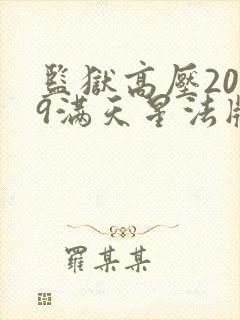 監獄高壓20
9满天星法版
羅某某